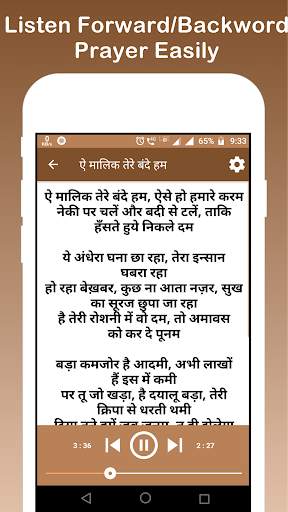 Listen Forward/Backword
Prayer Easily
65% 9:33
ऐ मालिक तेरे बंदे हम
ऐ मालिक तेरे बंदे हम, ऐसे हो हमारे करम
नेकी पर चलें और बदी से टलें, ताकि
हँसते हुये निकले दम
ये अंधेरा घना छा रहा, तेरा इन्सान
घबरा रहा
हो रहा बेख़बर, कुछ ना आता नज़र, सुख
का सूरज छुपा जा रहा
है तेरी रोशनी में वो दम, तो अमावस
को कर दे पूनम
बड़ा कमजोर है आदमी, अभी लाखों
हैं इस में कमी
पर तू जो खड़ा, है दयालू बड़ा, तेरी
क्रिपा से धरती थमी
3 : 36
2 : 27